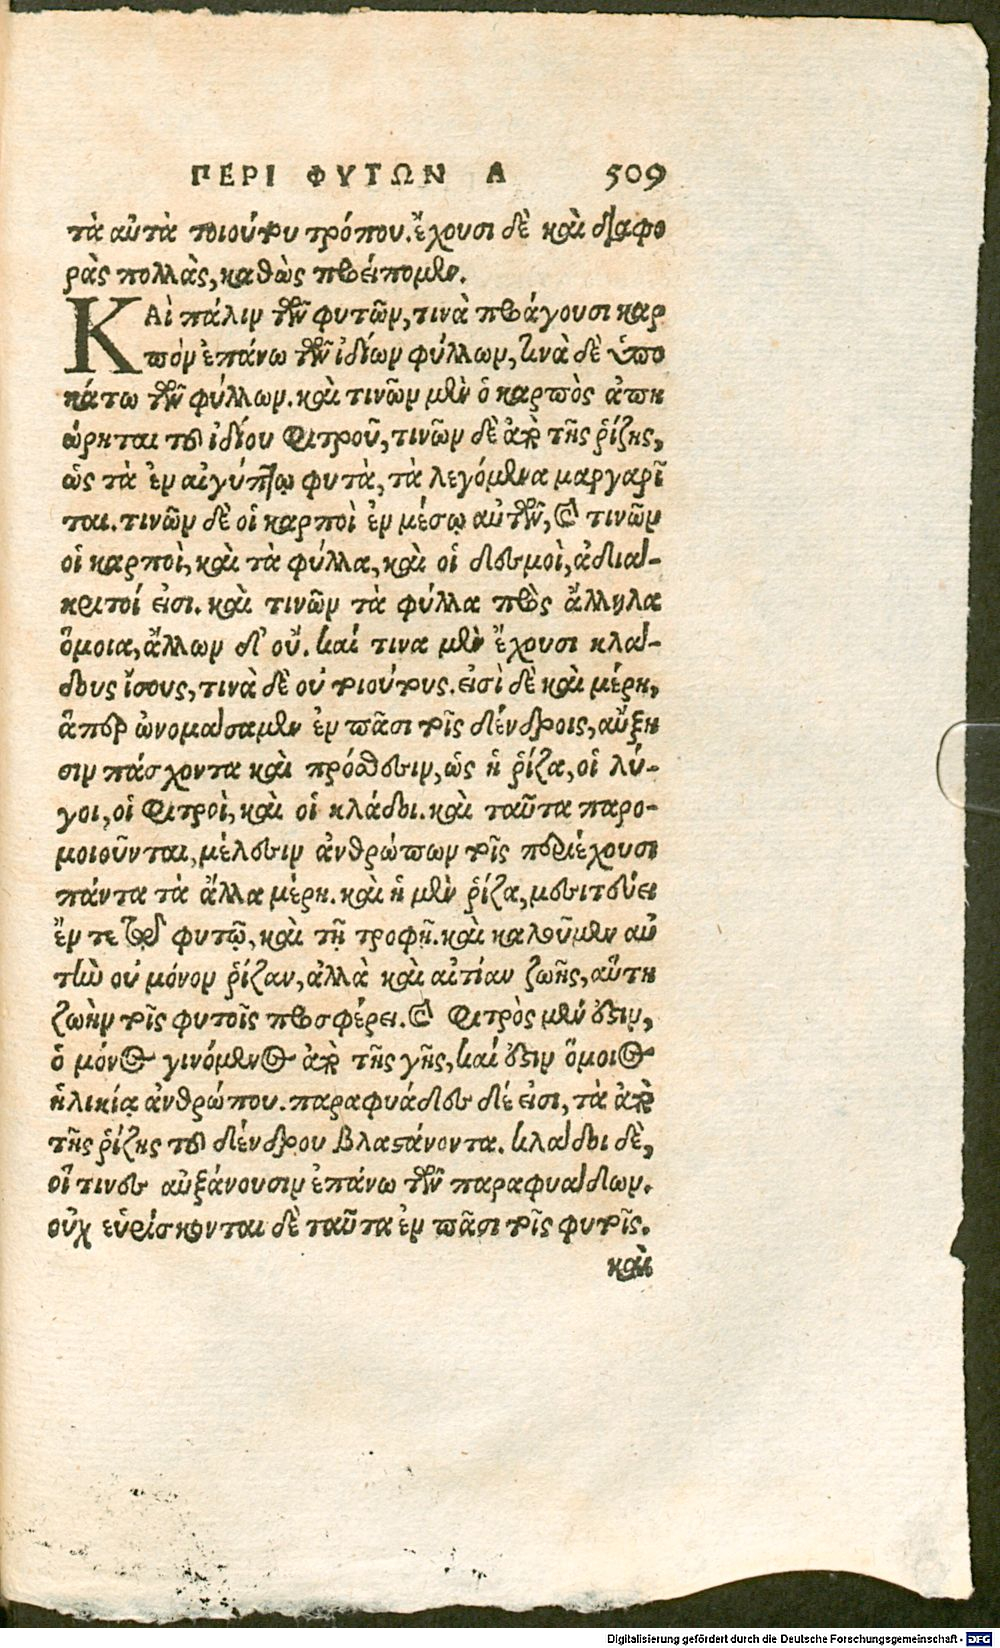 ΠΕΡΙ ΦΥΤΩΝ Α 509
τὰ αὐτὰ τοιούτου τρόπου. ἔχουσι δὲ καὶ διαφο
ρὰς πολλὰς, καθὼς προείπομεν.
ΚΑὶ πάλιν τῶν φυτῶν, τινὰ προάγουσι καρ
πὸν ἐπάνω τῶν ἰδίων φύλλων, τινὰ δὲ ὑπο
κάτω τῶν φύλλων. καὶ τινῶν μὲν ὁ καρπὸς ἀπη
ώρηται τοῦ ἰδίου πρέμνου, τινῶν δὲ ἀπὸ τῆς ῥίζης,
ὡς τὰ ἐν αἰγύπτῳ φυτὰ, τὰ λεγόμενα μαργαρῖ
ται. τινῶν δὲ οἱ καρποὶ ἐν μέσῳ αὐτῶν, καὶ τινῶν
οἱ καρποὶ, καὶ τὰ φύλλα, καὶ οἱ δεσμοὶ, ἀδιά-
κριτοί εἰσι. καὶ τινῶν τὰ φύλλα πρὸς ἄλληλα
ὅμοια, ἄλλων δ' οὔ. καί τινα μὲν ἔχουσι κλά-
δους ἴσους, τινὰ δὲ οὐ τοιούτους. εἰσὶ δὲ καὶ μέρη,
ἅπερ ὠνομάσαμεν ἐν πᾶσι τοῖς δένδροις, αὔξη
σιν πάσχοντα καὶ πρόσθεσιν, ὡς ἡ ῥίζα, οἱ λύ-
γοι, οἱ φιτροὶ, καὶ οἱ κλάδοι. καὶ ταῦτα παρο-
μοιοῦνται, μέλεσιν ἀνθρώπων τοῖς περιέχουσι
πάντα τὰ ἄλλα μέρη. καὶ ἡ μὲν ῥίζα, μεσιτεύει
ἔν τε τῷ φυτῷ, καὶ τῇ τροφῇ. καὶ καλοῦμεν αὐ
τὴν οὐ μόνον ῥίζαν, ἀλλὰ καὶ αἰτίαν ζωῆς, αὕτη
ζωὴν τοῖς φυτοῖς προσφέρει. καὶ φιτρὸς μέν ἐστιν,
ὁ μόνος γινόμενος ἀπὸ τῆς γῆς, καί ἐστιν ὅμοιος
ἡλικίᾳ ἀνθρώπου. παραφυάδες δέ εἰσι, τὰ ἀπὸ
τῆς ῥίζης τοῦ δένδρου βλαστάνοντα. κλάδοι δὲ,
οἵ τινες αὐξάνουσιν ἐπάνω τῶν παραφυάδων.
οὐχ εὑρίσκονται δὲ ταῦτα ἐν πᾶσι τοῖς φυτοῖς.
καὶ
Digitalisierung gefördert durch die Deutsche Forschungsgemeinschaft - DFG